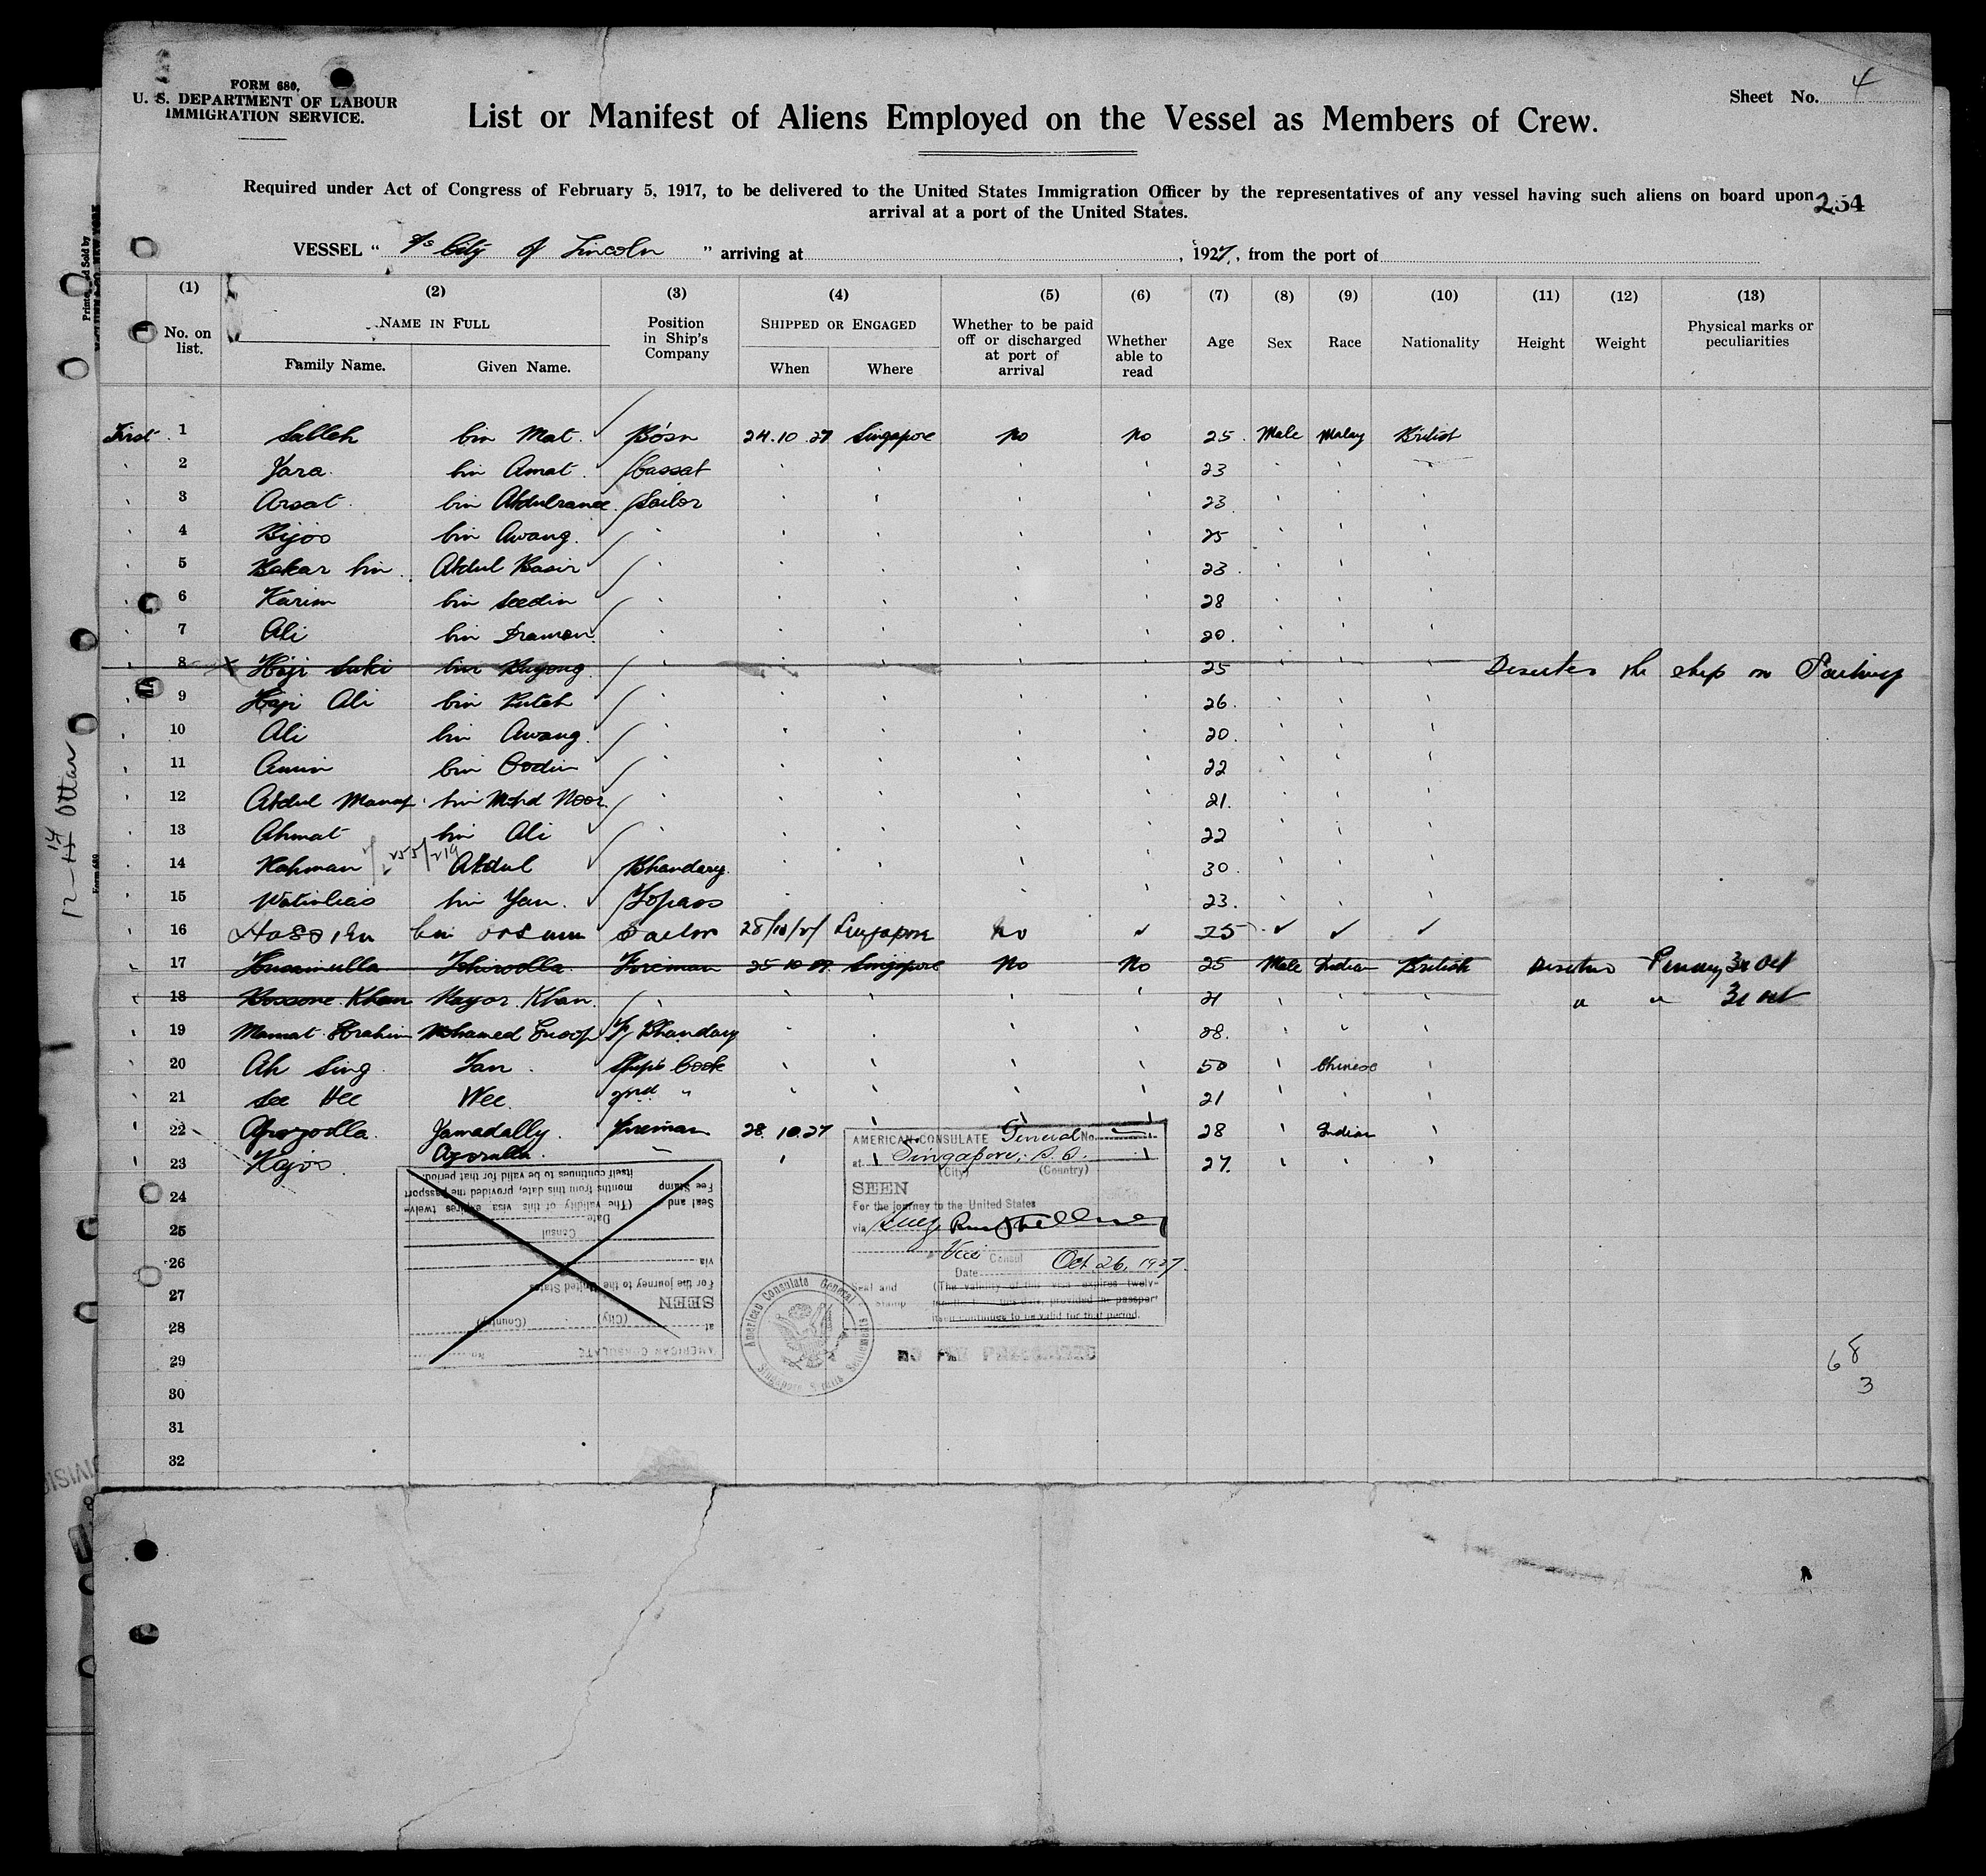 FORM 680,
U. S. DEPARTMENT OF LABOUR
IMMIGRATION SERVICE.
Sheet No. 4
List or Manifest of Aliens Employed on the Vessel as Members of Crew.
Required under Act of Congress of February 5, 1917, to be delivered to the United States Immigration Officer by the representatives of any vessel having such aliens on board upon
arrival at a port of the United States.
254
VESSEL " S/s City of Lincoln " arriving at , 1927, from the port of
(1) (2) (3) (4) (5) (6) (7) (8) (9) (10) (11) (12) (13)
No. on list. NAME IN FULL Family Name. Given Name. Position in Ship's Company SHIPPED OR ENGAGED When Where Whether to be paid off or discharged at port of arrival Whether able to read Age Sex Race Nationality Height Weight Physical marks or peculiarities
First 1 Salleh bin Mat Bosn 24.10.27 Singapore No No 25 Male Malay British
2 Jara bin Amat Cassat 23
3 Arsat bin Sailor 23
4 Bijoo bin Awang 25
5 Bakar bin Abdul Basir 23
6 Karim bin Seedin 28
7 Ali bin Draman 20
8 X Haji Suki bin Buyong 25 the ship on
9 Haji Ali bin Puteh 26
10 Ali bin Awang 20
11 Amin bin Oodin 22
12 Abdul Manaf bin Mohd Noor 21
13 Ahmat bin Ali 22
14 Rahman Abdul Bhandary 30
15 bin Yan Topass 23
16 bin Sailor 25/10/27 Singapore No ✓ 25 ✓ ✓ ✓
17 Husainulla Fireman 25 10 27 Singapore No No 25 Male Indian British
18 Khan Khan 21 " "
19 Mamat Ebrahim Mohamed Bhandary 28
20 Ah Sing Tan Ship's Cook 50 Chinese
21 See Hee Wee 2nd " 21
22 Jamadally Fireman 28.10.27 28 Indian
23 27
24
25
26
27
28
29
30
31
32
AMERICAN CONSULATE General No.
at Singapore, S.S.
(City) (Country)
SEEN
For the journey to the United States
via Suez
Vice Consul
Date Oct. 26, 1927.
Seal and Stamp (The validity of this visa expires twelve
months from this date, provided the passport
itself continues to be valid for that period.
AMERICAN CONSULATE No.
at
(City) (Country)
SEEN
For the journey to the United States
via
Consul
Date
Seal and Fee Stamp (The validity of this visa expires twelve
months from this date, provided the passport
itself continues to be valid for that period.
American Consulate General
Singapore Straits Settlements
68
3
Form 680